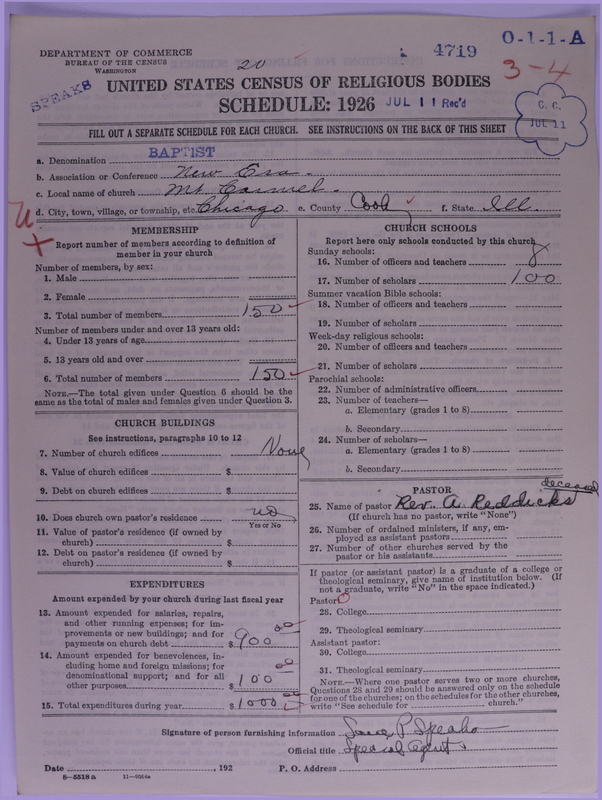 DEPARTMENT OF COMMERCE
BUREAU OF THE CENSUS
WASHINGTON
20
4719
O-1-1-A
3-4
SPEAKS
UNITED STATES CENSUS OF RELIGIOUS BODIES
SCHEDULE: 1926
JUL 11 Rec'd
C. C.
JUL 11
FILL OUT A SEPARATE SCHEDULE FOR EACH CHURCH. SEE INSTRUCTIONS ON THE BACK OF THIS SHEET
a. Denomination BAPTIST
b. Association or Conference New Era.
c. Local name of church Mt. Carmel.
d. City, town, village, or township, etc. Chicago e. County Cook f. State Ill.
MEMBERSHIP
Report number of members according to definition of
member in your church
Number of members, by sex:
1. Male
2. Female
3. Total number of members 150
Number of members under and over 13 years old:
4. Under 13 years of age
5. 13 years old and over
6. Total number of members 150
NOTE.—The total given under Question 6 should be the
same as the total of males and females given under Question 3.
CHURCH BUILDINGS
See instructions, paragraphs 10 to 12
7. Number of church edifices None
8. Value of church edifices $
9. Debt on church edifices $
10. Does church own pastor's residence no
Yes or No
11. Value of pastor's residence (if owned by
church) $
12. Debt on pastor's residence (if owned by
church) $
EXPENDITURES
Amount expended by your church during last fiscal year
13. Amount expended for salaries, repairs,
and other running expenses; for im-
provements or new buildings; and for
payments on church debt $ 900 00
14. Amount expended for benevolences, in-
cluding home and foreign missions; for
denominational support; and for all
other purposes $ 100 00
15. Total expenditures during year $ 1000 00
CHURCH SCHOOLS
Report here only schools conducted by this church
Sunday schools:
16. Number of officers and teachers 8
17. Number of scholars 100
Summer vacation Bible schools:
18. Number of officers and teachers
19. Number of scholars
Week-day religious schools:
20. Number of officers and teachers
21. Number of scholars
Parochial schools:
22. Number of administrative officers
23. Number of teachers—
a. Elementary (grades 1 to 8)
b. Secondary
24. Number of scholars—
a. Elementary (grades 1 to 8)
b. Secondary
PASTOR
deceased
25. Name of pastor Rev. A. Reddicks
(If church has no pastor, write "None")
26. Number of ordained ministers, if any, em-
ployed as assistant pastors
27. Number of other churches served by the
pastor or his assistants
If pastor (or assistant pastor) is a graduate of a college or
theological seminary, give name of institution below. (If
not a graduate, write "No" in the space indicated.)
Pastor:
28. College
29. Theological seminary
Assistant pastor:
30. College
31. Theological seminary
NOTE.—Where one pastor serves two or more churches,
Questions 28 and 29 should be answered only on the schedule
for one of the churches; on the schedules for the other churches,
write "See schedule for church."
Signature of person furnishing information P. Speaks
Official title Special Agent
Date , 192 P. O. Address
8—5518 a 11—9264a